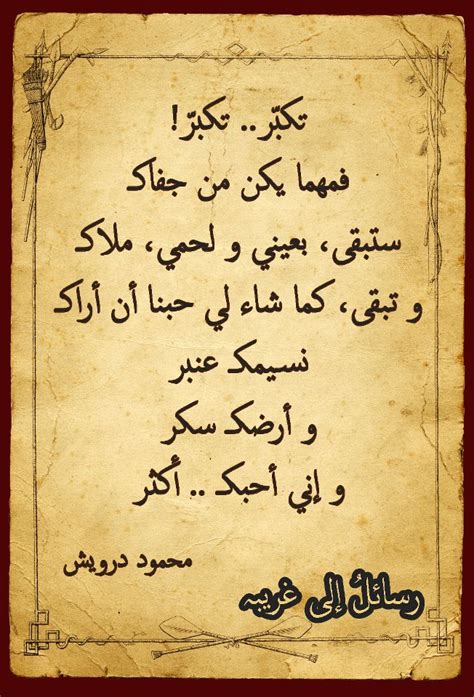 تكبّر.. تكبرّ!
فمهما يكن من جفاكـ
ستبقى، بعيني و لحمي، ملاكـ
و تبقى، كما شاء لي حبنا أن أراكـ
نسيمكـ عنبر
و أرضكـ سكر
و إني أحبكـ .. أكثر
محمود درويش
رسائلُ إلى غريبه